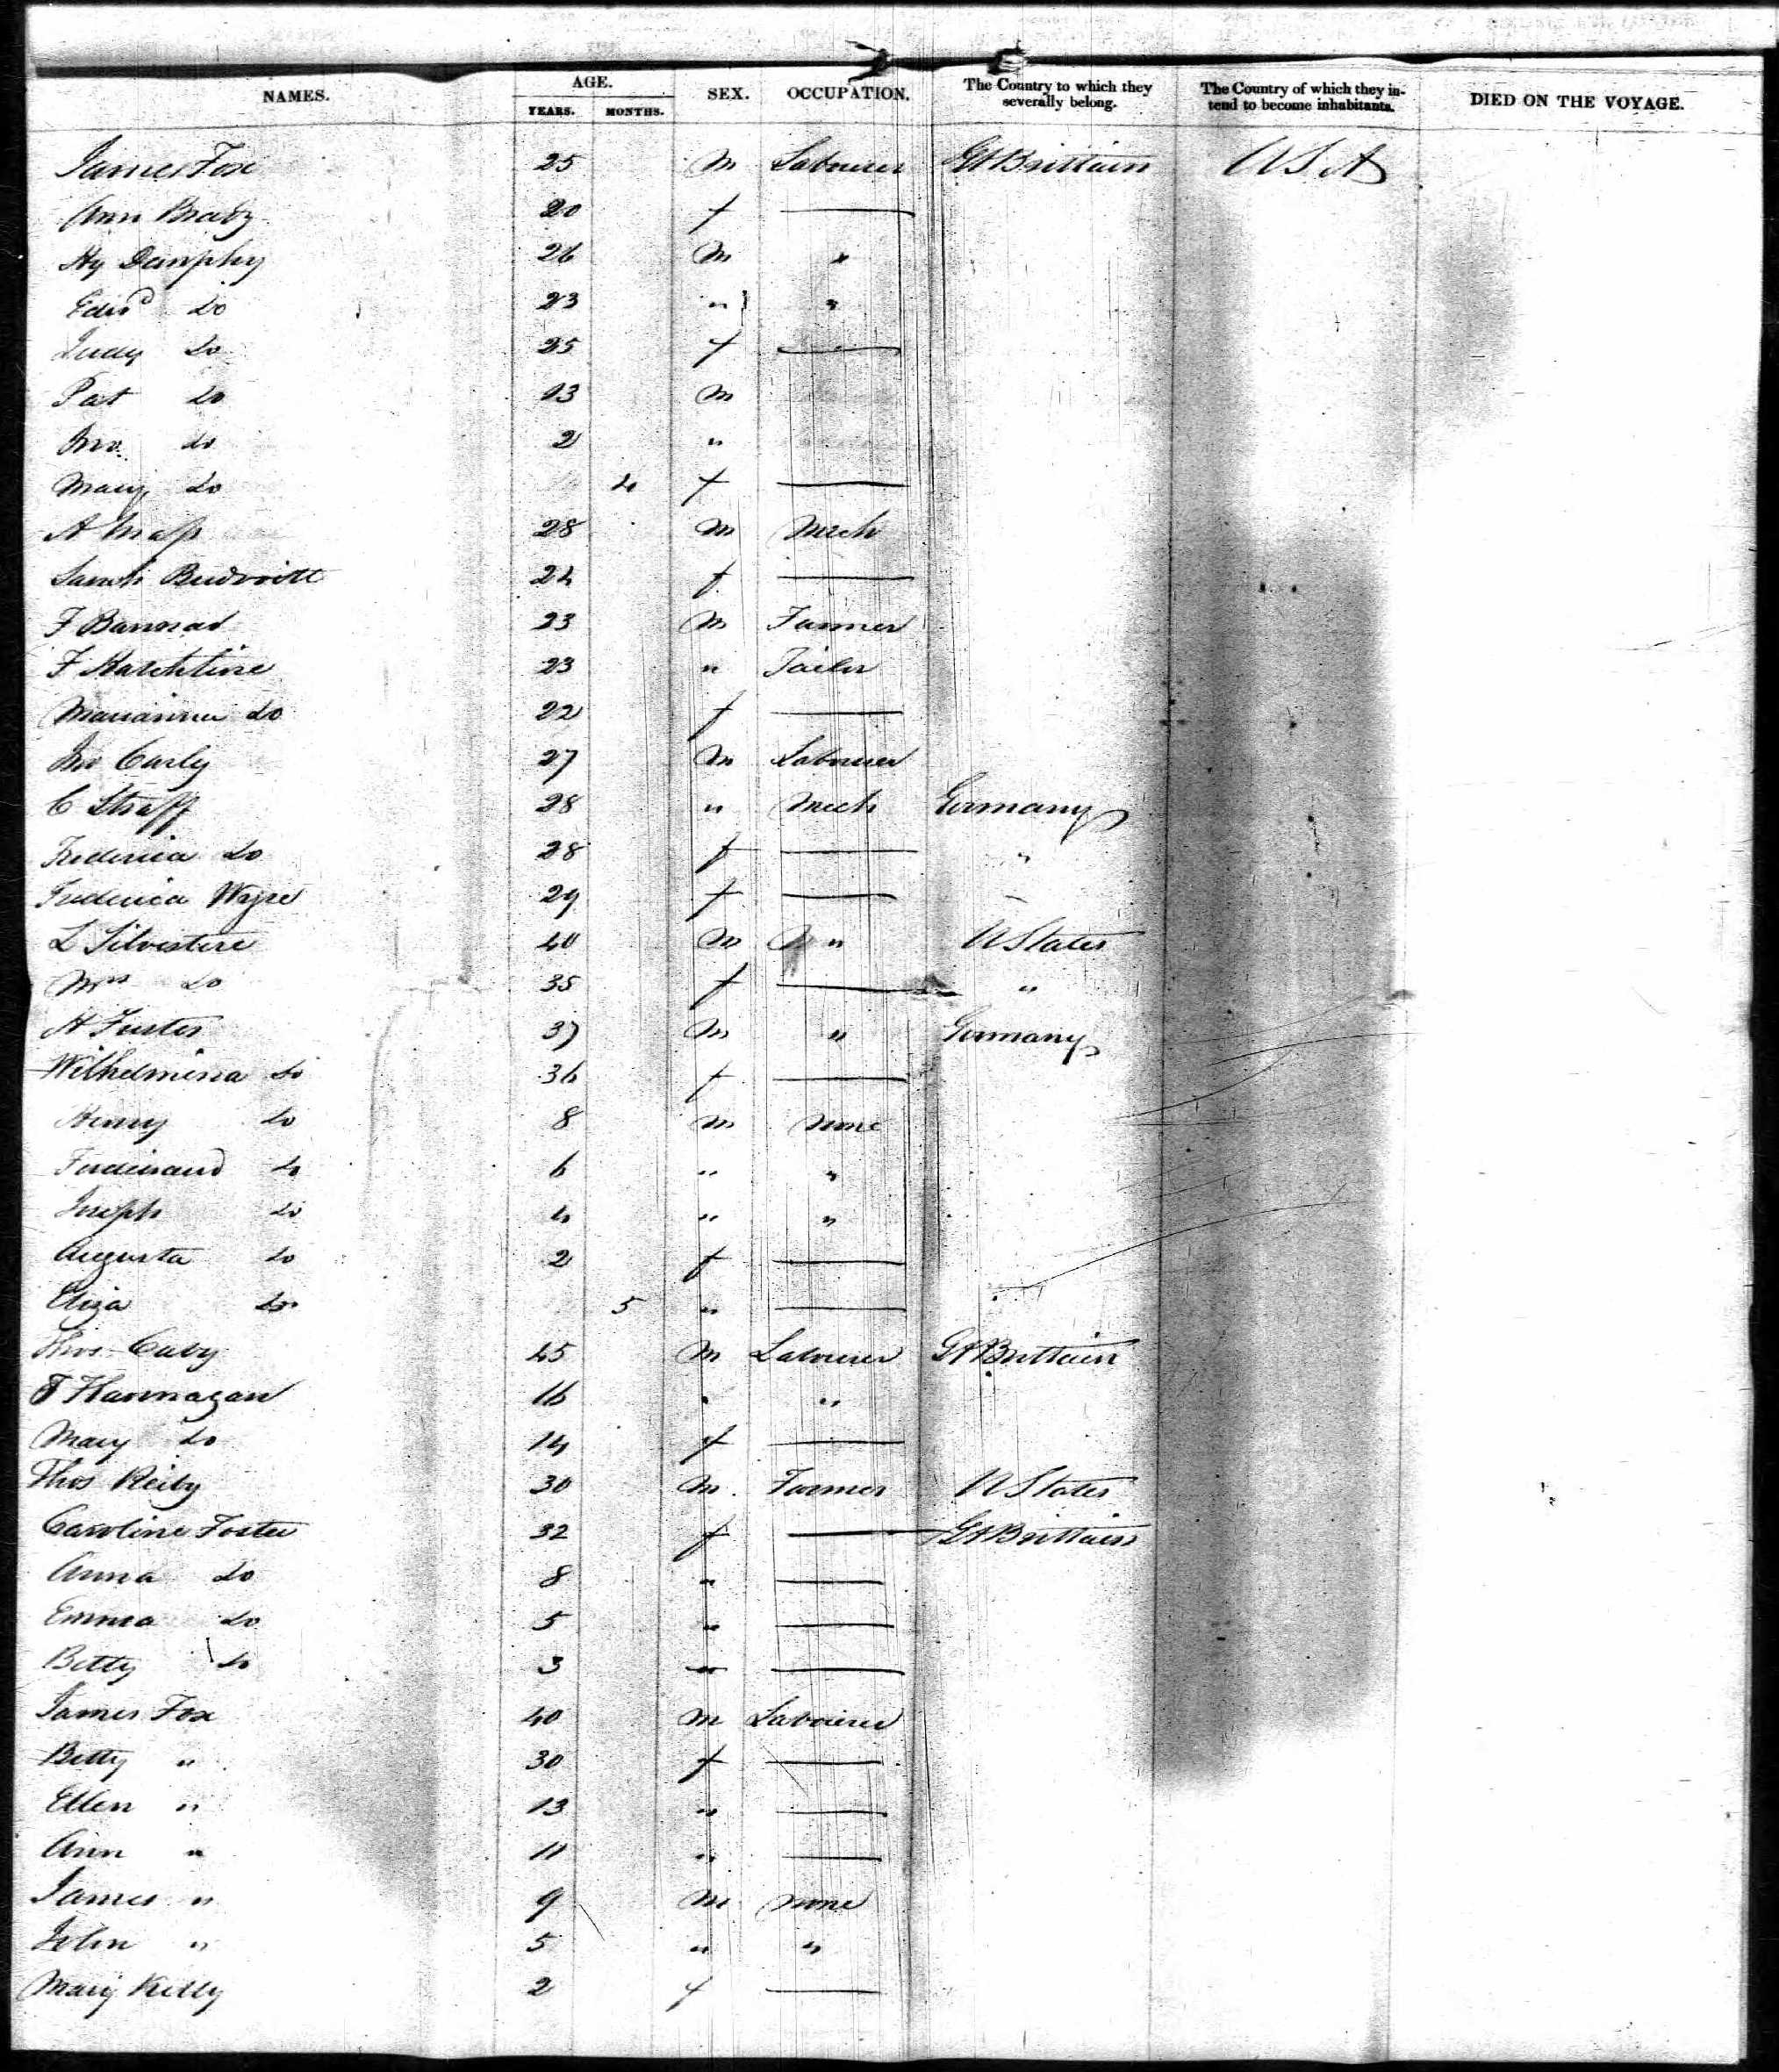 NAMES. AGE. YEARS. MONTHS. SEX. OCCUPATION. The Country to which they severally belong. The Country of which they intend to become inhabitants. DIED ON THE VOYAGE.
James Fox 25 M Labourer Gt Brittain U S A
Ann Brady 20 f —
Hy Dunphy 26 M "
Edwd Do 23 " "
Judy Do 25 f —
Pat Do 13 M
Jno. do 2 "
Mary Do 4 f —
A 28 M Mech
Sarah 24 f —
F 23 M Farmer
F 23 " Tailor
Marianna Do 22 f —
Jno Carly 27 M Labourer
C Straff 28 " Mech Germany
Frederica Do 28 f — "
Frederica 29 f —
L Silvestire 40 M " U States
Mrs Do 35 f — "
A 37 M " Germany
Wilhelmina Do 36 f —
Henry Do 8 M None
Ferdinand Do 6 " "
Joseph Do 4 " "
Augusta Do 2 f —
Eliza Do 5 " —
Thos 45 M Labourer Gt Brittain
Flannagan 16 " "
Mary Do 14 f —
Thos Reily 30 M Farmer U States
Caroline Foster 32 f — Gt Brittain
Anna Do 8 " —
Emma Do 5 " —
Betty Do 3 " —
James Fox 40 M Labourer
Betty " 30 f —
Ellen " 13 " —
Ann " 11 " —
James " 9 M None
John " 5 " "
Mary Kelly 2 f —